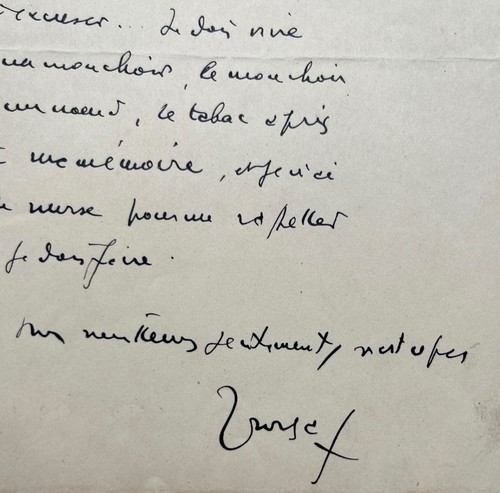 excuser... Je dois vivre
un mouchoir, le mouchoir
un noeud, le tabac a pris
ma mémoire, et je n'ai
nurse pour me rappeler
je dois faire.
meilleurs sentiments, n'est-ce pas